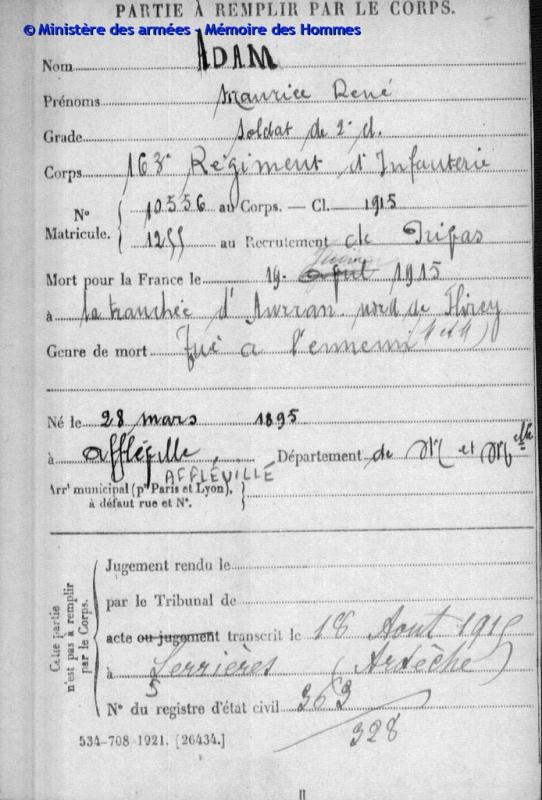 PARTIE À REMPLIR PAR LE CORPS.
© Ministère des armées - Mémoire des Hommes
Nom ADAM
Prénoms Maurice René
Grade Soldat de 2e cl.
Corps 163e Régiment d'Infanterie
N° Matricule. 10556 au Corps. — Cl. 1915
1255 au Recrutement de Privas
juin
Mort pour la France le 19 avril 1915
à la tranchée d' nord de Flirey
Genre de mort Tué a l'ennemi (M et M)
Né le 28 mars 1895
à Affléville Département de M et Mlle
AFFLÉVILLE
Arrt municipal (pr Paris et Lyon),
à défaut rue et N°.
Cette partie
n'est pas à remplir
par le Corps.
Jugement rendu le
par le Tribunal de
acte ou jugement transcrit le 18 Aout 1915
à Serrières (Ardèche)
5
N° du registre d'état civil 363
328
534-708-1921. [26434.]